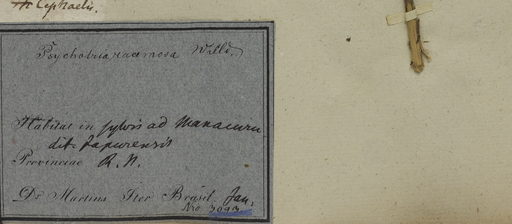 Cephaelis.
Psychotria racemosa Willd.
Habitat in sylvis ad Manacuru
dit. Japurensis
Provinciae R. N.
Dr Martius Iter Brasil. Jan.
Nro 3093